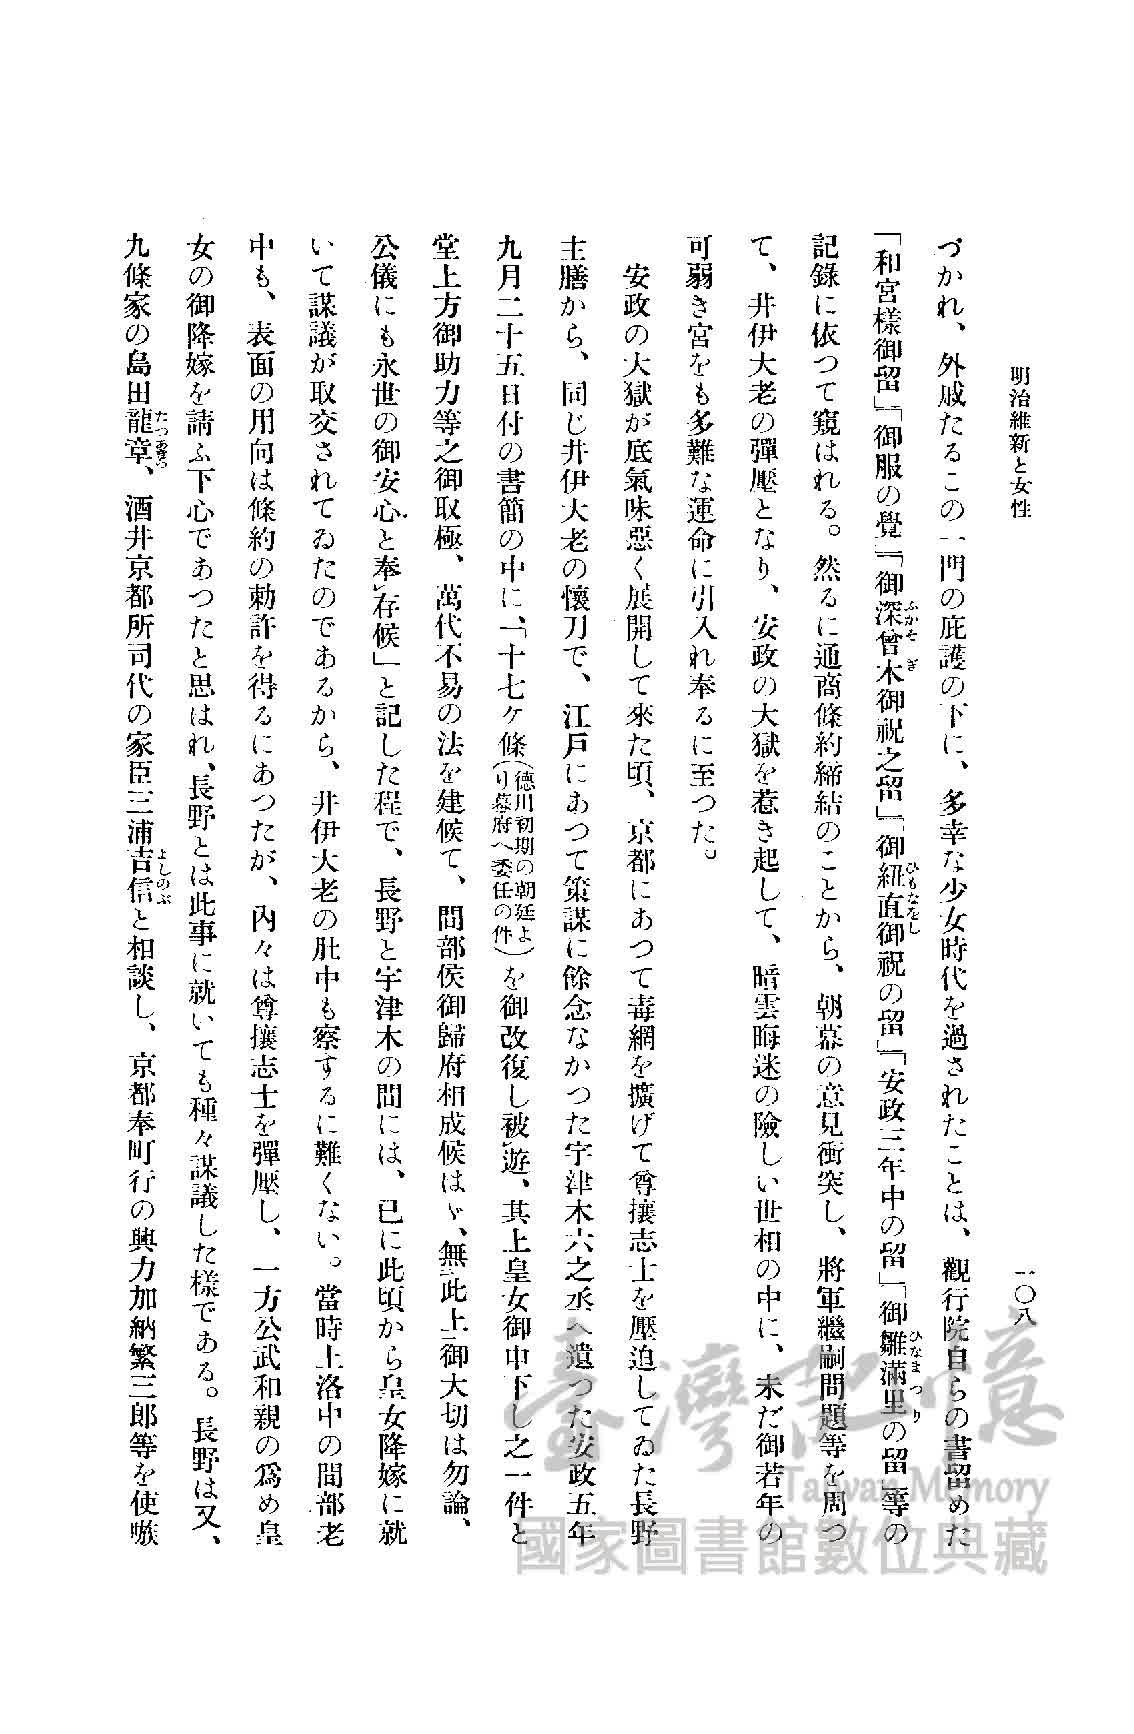 明治維新と女性
一〇八
づかれ、外戚たるこの一門の庇護の下に、多幸な少女時代を過されたことは、觀行院自らの書留めた
「和宮樣御留」「御服の覺」「御深曾木御祝之留」「御紐直御祝の留」「安政三年中の留」「御雛滿里の留」等の
記錄に依つて窺はれる。然るに通商條約締結のことから、朝幕の意見衝突し、將軍繼嗣問題等を周つ
て、井伊大老の彈壓となり、安政の大獄を惹き起して、暗雲晦迷の險しい世相の中に、未だ御若年の
可弱き宮をも多難な運命に引入れ奉るに至つた。
安政の大獄が底氣味惡く展開して來た頃、京都にあつて毒網を擴げて尊攘志士を壓迫してゐた長野
主膳から、同じ井伊大老の懷刀で、江戸にあつて策謀に餘念なかつた宇津木六之丞へ遺つた安政五年
九月二十五日付の書簡の中に、「十七ケ條(德川初期の朝廷より幕府へ委任の件)を御改復し被遊、其上皇女御申下し之一件と
堂上方御助力等之御取極、萬代不易の法を建候て、間部侯御歸府相成候はゞ、無此上御大切は勿論、
公儀にも永世の御安心と奉存候」と記した程で、長野と宇津木の間には、已に此頃から皇女降嫁に就
いて謀議が取交されてゐたのであるから、井伊大老の肚中も察するに難くない。當時上洛中の間部老
中も、表面の用向は條約の勅許を得るにあつたが、內々は尊攘志士を彈壓し、一方公武和親の爲め皇
女の御降嫁を請ふ下心であつたと思はれ、長野とは此事に就いても種々謀議した樣である。長野は又、
九條家の島田龍章、酒井京都所司代の家臣三浦吉信と相談し、京都奉町行の與力加納繁三郎等を使嗾
ふかそぎ
ひもなをし
ひなまつり
たつあきら
よしのぶ
臺灣記憶
Taiwan Memory
國家圖書館數位典藏